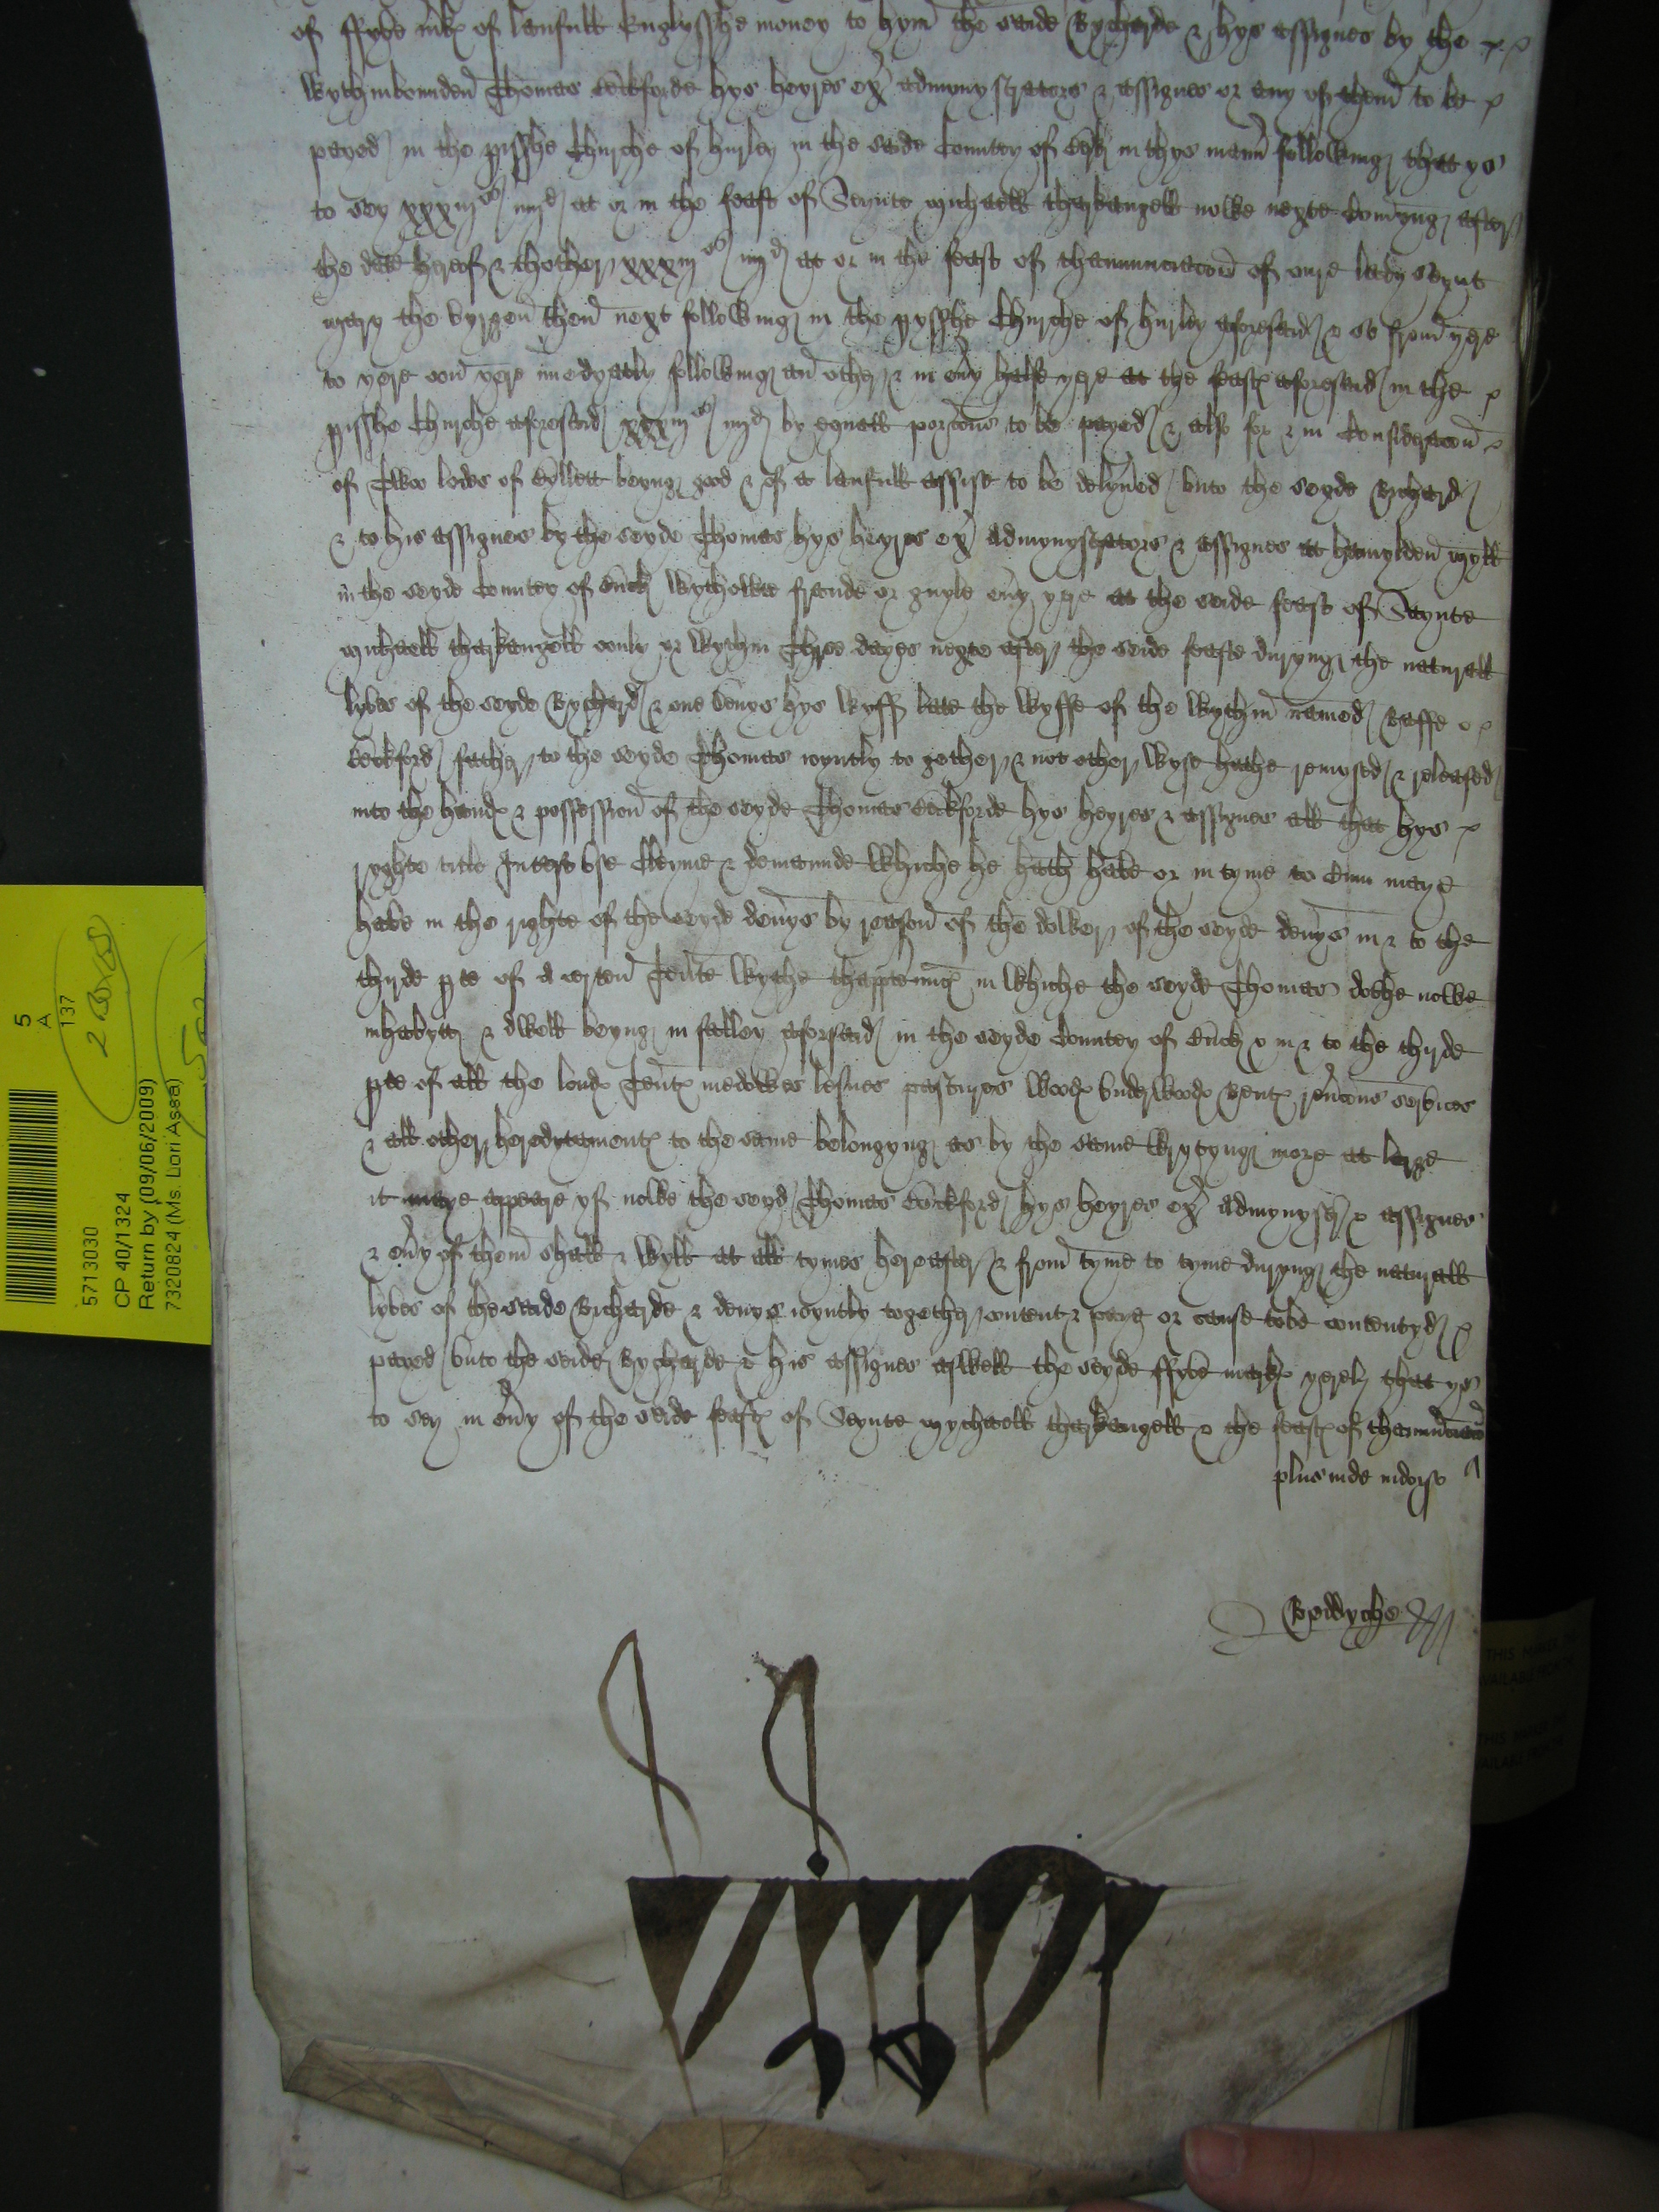 of ffyve mrkes of laufull Englysshe money to hym the saide Rycharde & hys assignes by the
wythinbounden Thomas Cokforde hys heyres ex admynystrators & assignes or eny of them to be
payed in the pisshe Churche of hurley in the saide Countey of in thys maner followeing that ys
to sey xxxiijs iiijd at or in the feast of Seynte michaell tharkangell nowe nexte Comyng after
the date hereof & thother xxxiijs iiijd at or in the feast of thannunciacon of oure lady seynt
mary the vyrgen then next following in the pysshe Churche of hurley aforesaid & so from yere
to yere von yere imedyatly following an other & in evy halfe yere at the feastes aforesaid in the
pisshe Churche aforesaid xxxiijs iiijd by equall porcons to be payed & also for & in Consideracon
of Two lodes of byllett beyng good & of a laufull assise to be delyved unto the seyde Richard
& to his assignes by the seyde Thomas hys heyres ex Admynystrators & assignes at hamylden myll
in the seyde Countey of Buck wythowte fraude or guyle evy yere at the saide feast of Saynte
michaell tharkangell only or wythin Three dayes nexte after the seide feaste duryng the naturall
lyves of the seyde Rychard & one denys hys wyff late the wyffe of the wythin named Raffe
Cokford father to the seyde Thomas ioyntly to gether & not other wyse hathe remysed & released
into the handes & possession of the seyde Thomas Cokforde hys heyres & assignes all that hys
ryghte title Interest use Cleyme & demaunde whiche he hath have or in tyme to Cum maye
have in the righte of the seyde denys by reason of the dower of the seyde denys in & to the
thyrde pte of a certen Tente wythe thapptennces in whiche the seyde Thomas dothe nowe
inhabyte & dwell beyng in falley aforsaid in the seyde Countey of Buck & in & to the thyrde
pte of all the londes Tentes medowes lesues pastures woodes underwoodes Rentes revcons servics
& all other heredytamentes to the same belongyng as by the same wrytyng more at large
it maye appeare yf nowe the seyd Thomas Cokford hys heyres ex Admynystr & assignes
& evy of them shall & wyll at all tymes hereafter & from tyme to tyme duryng the naturall
lyves of the saide Richarde & denys ioyntly together content & paye or cause to be contentyd
payed unto the seide Rycharde & his assignes aswell the seyde ffyve markes yerely that ys
to sey in evy of the seide feastes of Seynte mychaell tharkangell & the feastes of thannunciacon
plus inde indorso
Reddyche
5
A
137
5713030
CP 40/1324
Return by (09/06/2009)
7320824 (Ms. Lori Assa)